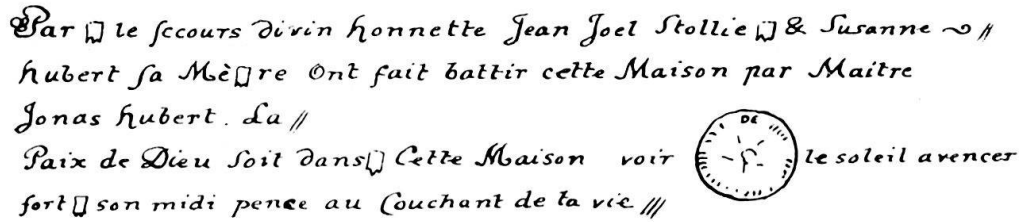 Par le secours divin honnette Jean Joel Stollie & Susanne
hubert sa Mère Ont fait battir cette Maison par Maitre
Jonas hubert. La
Paix de Dieu soit dans Cette Maison voir DE le soleil avencer
fort son midi pence au Couchant de ta vie